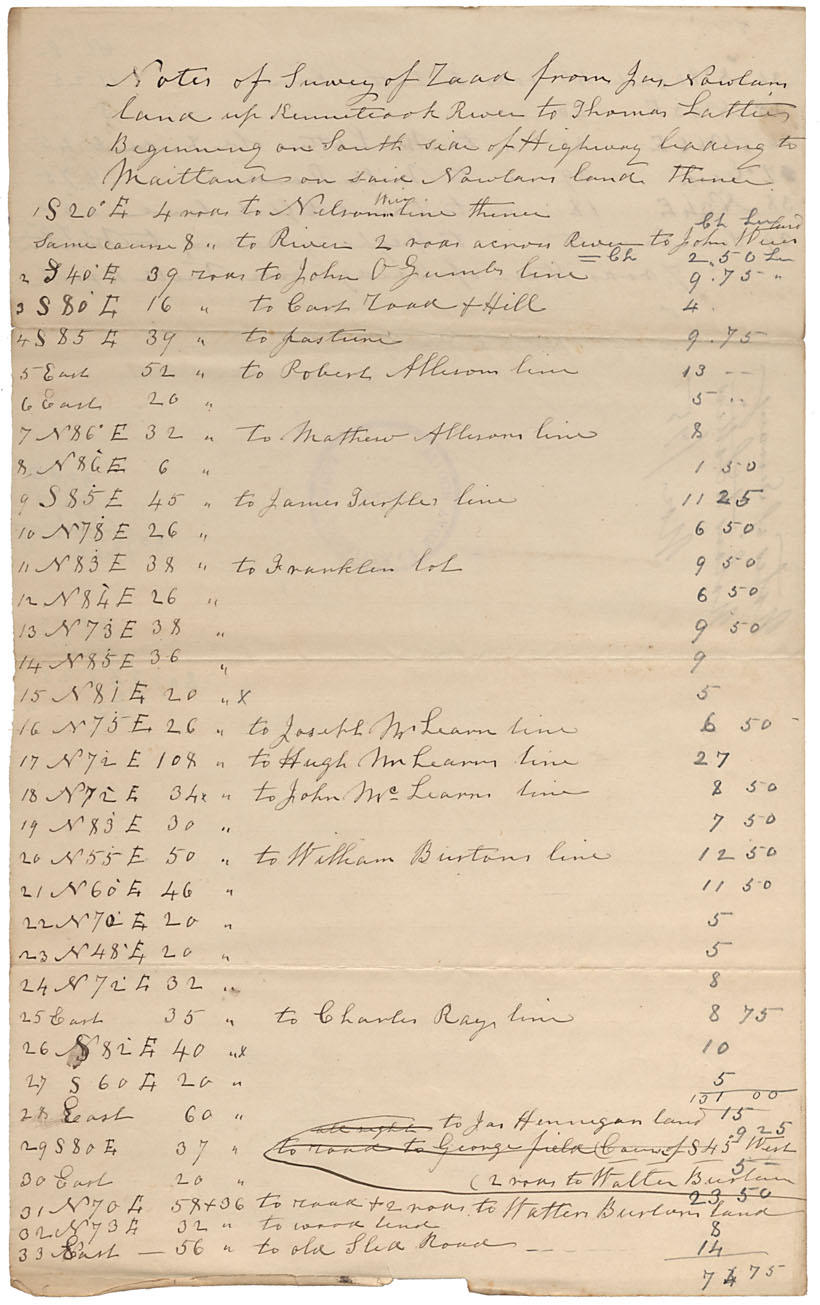 Notes of Survey of Road from Jas Nowlans
land up Kennetcook River to Thomas Latties
Beginning on South side of Highway leading to
Maitland on said Nowlans land thence
1 S 20° E 4 rods to Nelson line thence
Ch
Same course 8 " to River 2 rods across River to John Wiers
= Ch 2.50
2 S 40° E 39 rods to John O Gumbs line 9.75 "
3 S 80° E 16 " to Cart Road & Hill 4
4 S 85 E 39 " to pasture 9.75
5 East 52 " to Robert Allisons line 13 --
6 East 20 " 5 --
7 N 86° E 32 " to Mathew Allisons line 8
8 N 86 E 6 " 1 50
9 S 85 E 45 " to James line 11 25
10 N 78 E 26 " 6 50
11 N 83 E 38 " to Franklin lot 9 50
12 N 84 E 26 " 6 50
13 N 73 E 38 " 9 50
14 N 85 E 36 " 9
15 N 81 E 20 " x 5
16 N 75 E 26 " to Joseph McLearn line 6 50
17 N 72 E 108 " to Hugh McLearns line 27
18 N 72 E 34 x " to John Mc Learns line 8 50
19 N 83 E 30 " 7 50
20 N 55 E 50 " to William Burtons line 12 50
21 N 60° E 46 " 11 50
22 N 70° E 20 " 5
23 N 48° E 20 " 5
24 N 72 E 32 " 8
25 East 35 " to Charles Rays line 8 75
26 S 82 E 40 " x 10
27 S 60 E 20 " 5
00
28 East 60 " to Jas Hennegan land 15
29 S 80 E 37 " to road to George field Course of S 45° West 9 25
30 East 20 " (2 rods to Walter Burton 5
31 N 70 E 58+36 to road + 2 rods to Walters Burtons land 23 50
32 N 73 E 32 " to wood land 8
33 East — 56 " to old Sled Road — 14
75